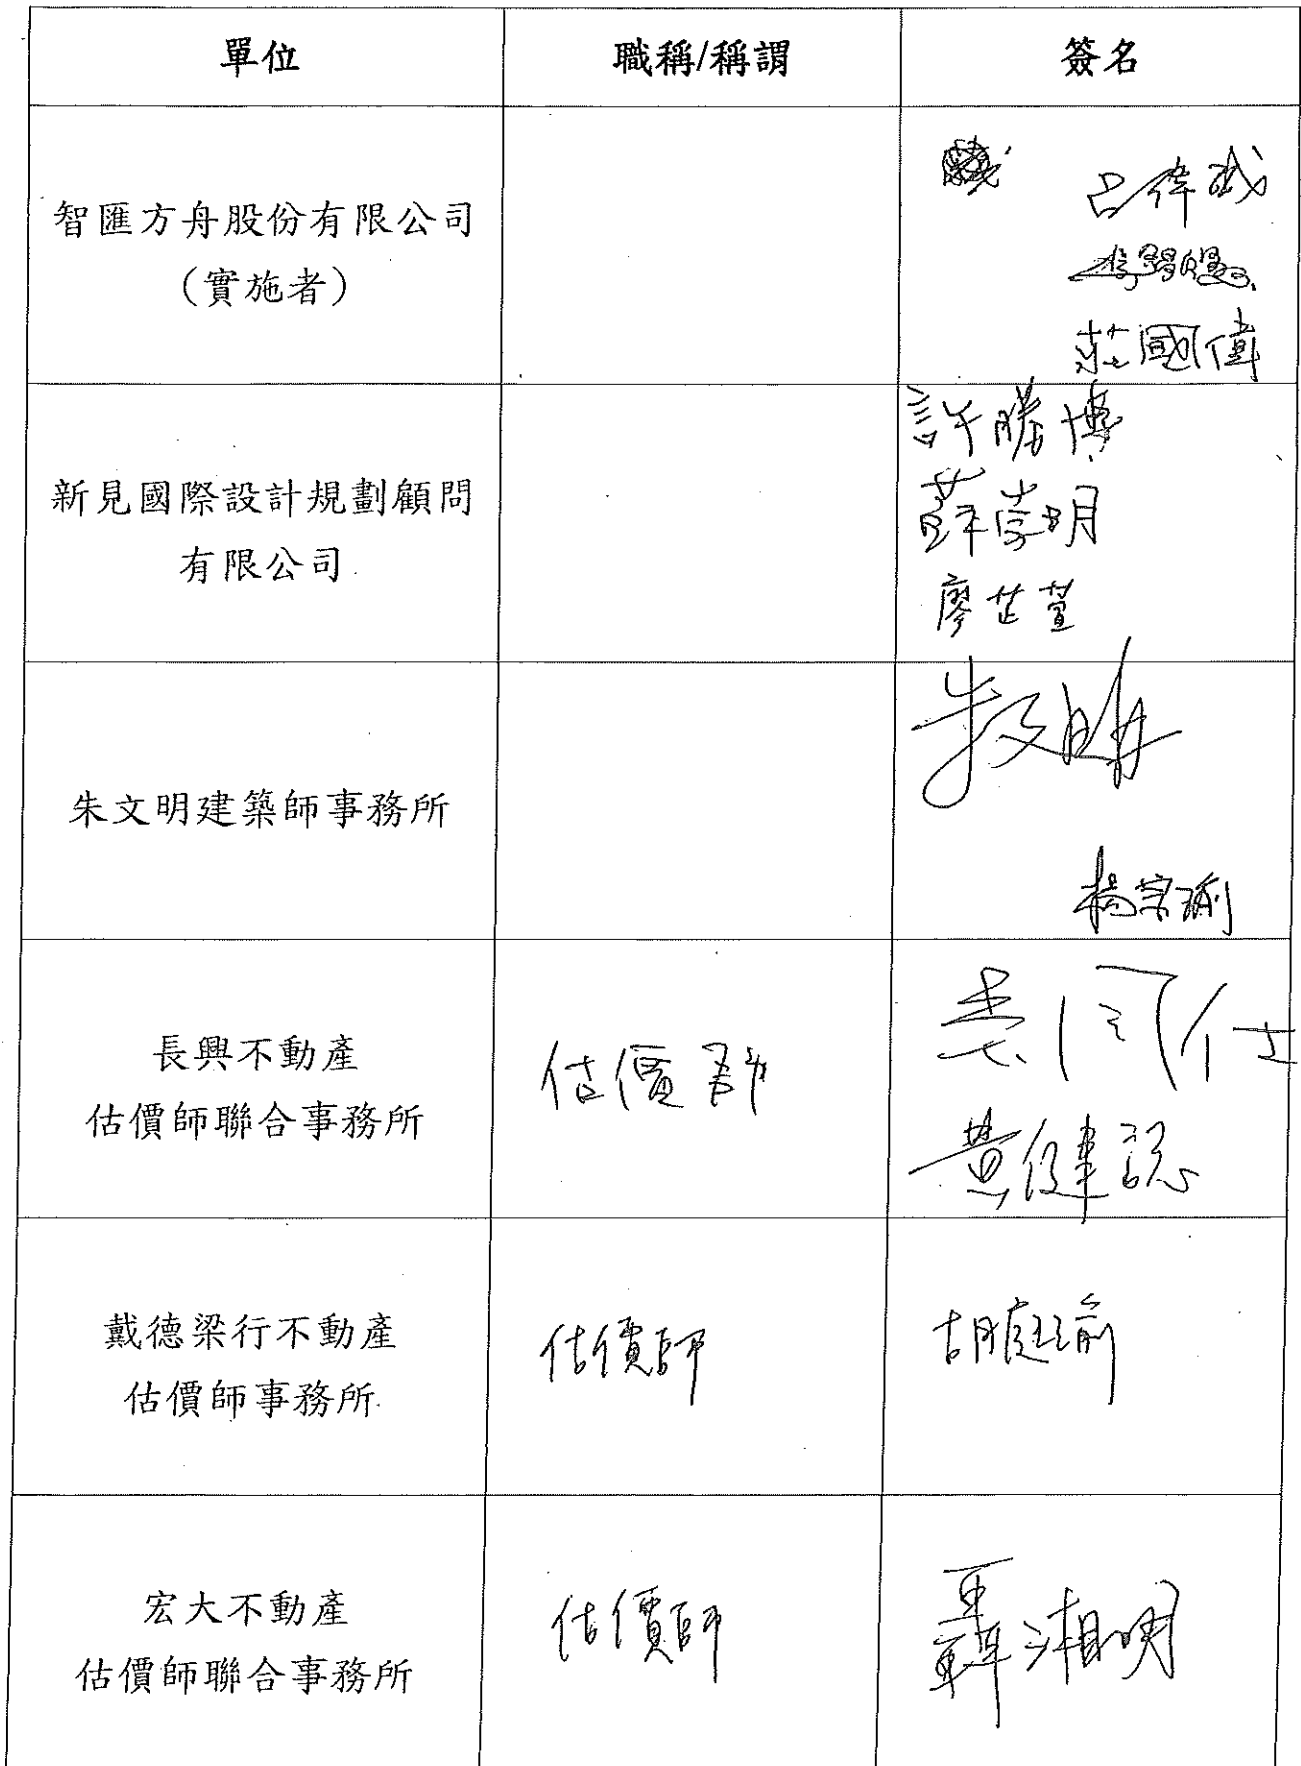 單位 職稱/稱謂 簽名
智匯方舟股份有限公司
(實施者)
呂偉誠
莊國偉
新見國際設計規劃顧問
有限公司
許勝博
蘇崇明
廖芷萱
朱文明建築師事務所
朱文明
楊宗瑜
長興不動產
估價師聯合事務所
估價師
黃健誌
戴德梁行不動產
估價師事務所
估價師
胡庭瑜
宏大不動產
估價師聯合事務所
估價師
覃湘明